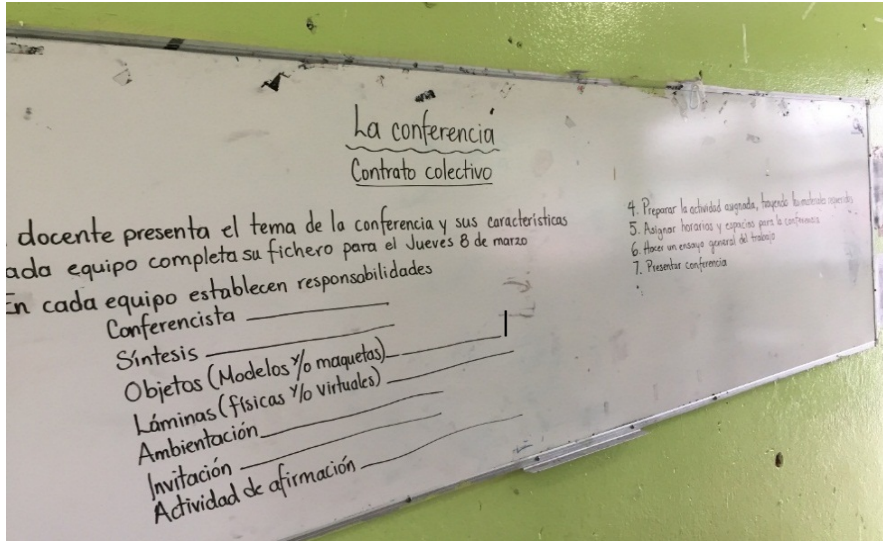 La conferencia
Contrato colectivo
docente presenta el tema de la conferencia y sus características
ada equipo completa su fichero para el Jueves 8 de marzo
En cada equipo establecen responsabilidades
Conferencista
Síntesis
Objetos (Modelos y/o maquetas)
Láminas (físicas y/o virtuales)
Ambientación
Invitación
Actividad de afirmación
4. Preparar la actividad asignada, trayendo los materiales
5. Asignar horarios y espacios para la conferencia
6. Hacer un ensayo general del trabajo
7. Presentar conferencia